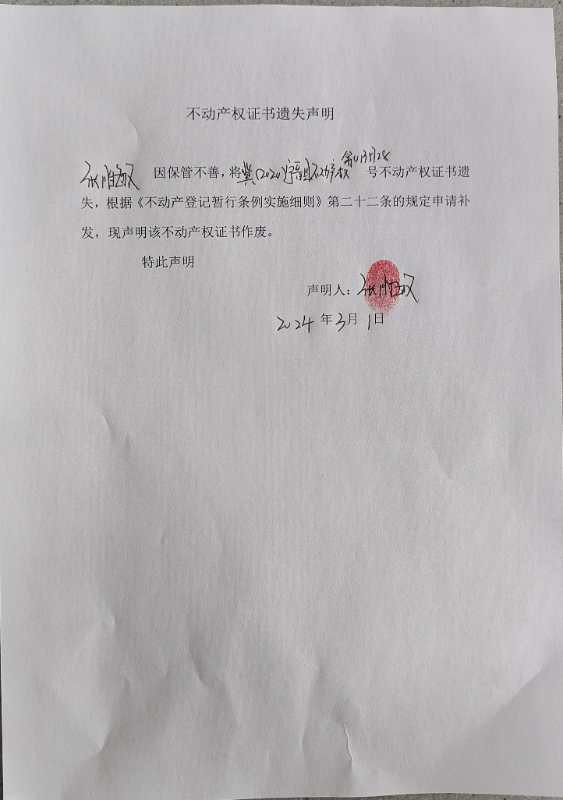 不动产权证书遗失声明
因保管不善，将冀(2020)不动产权第0131128号不动产权证书遗
失，根据《不动产登记暂行条例实施细则》第二十二条的规定申请补
发，现声明该不动产权证书作废。
特此声明
声明人：
2024年3月1日